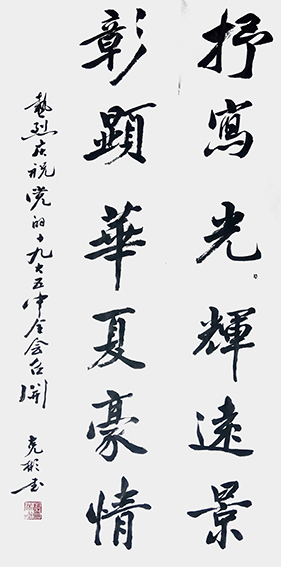 抒寫光輝遠景
彰顯華夏豪情
熱烈庆祝党的十九大五中全会召開
克彬书